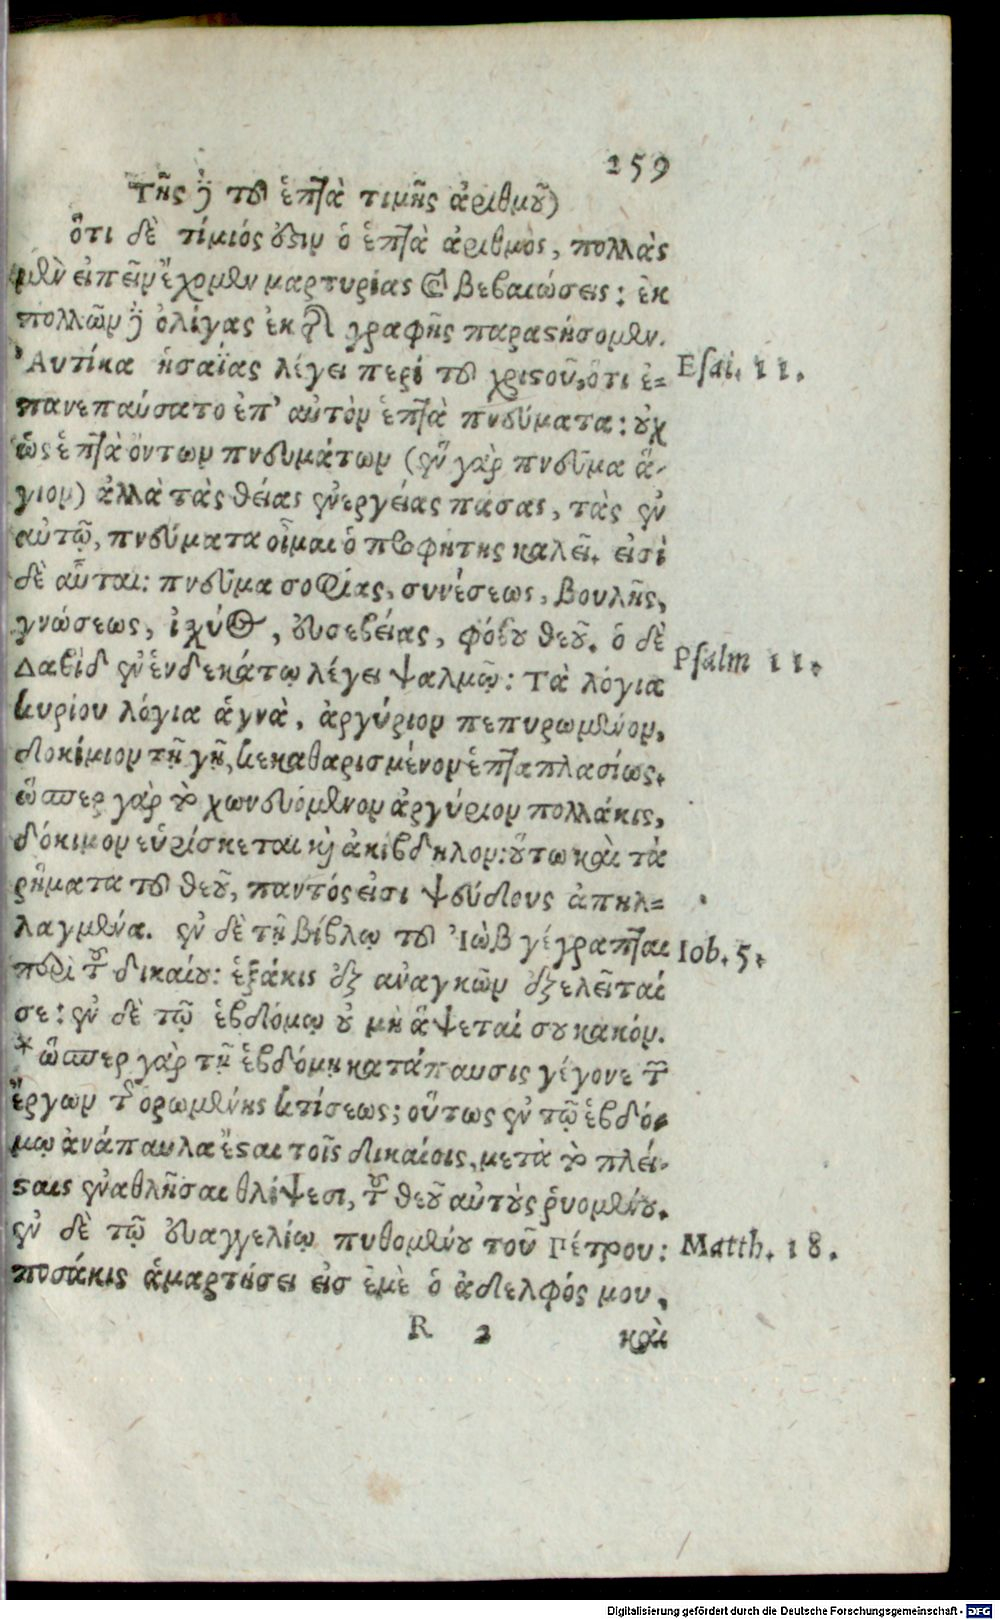 259
τῆς δὲ τοῦ ἑπτὰ τιμῆς ἀριθμοῦ)
ὅτι δὲ τίμιός ὅστιν ὁ ἑπτὰ ἀριθμὸς, πολλὰς
μὲν εἰπεῖν ἔχομεν μαρτυρίας καὶ βεβαιώσεις: ἐκ
πολλῶν δὲ ὀλίγας ἐκ τῆς γραφῆς παραστήσομεν.
Αὐτίκα ἡσαΐας λέγει περὶ τοῦ χριστοῦ, ὅτι ἐ=
πανεπαύσατο ἐπ' αὐτὸν ἑπτὰ πνεύματα: οὐχ
ὡς ἑπτὰ ὄντων πνευμάτων (ἓν γὰρ πνεῦμα ἅ-
γιον) ἀλλὰ τὰς θείας ἐνεργείας πάσας, τὰς ἐν
αὐτῷ, πνεύματα οἶμαι ὁ προφήτης καλεῖ. εἰσὶ
δὲ αὗται: πνεῦμα σοφίας, συνέσεως, βουλῆς,
γνώσεως, ἰχύος, εὐσεβείας, φόβου θεοῦ. ὁ δὲ
Δαβὶδ ἐν ἑνδεκάτῳ λέγει ψαλμῷ: Τὰ λόγια
κυρίου λόγια ἁγνὰ, ἀργύριον πεπυρωμένον,
δοκίμιον τῇ γῇ, κεκαθαρισμένον ἑπταπλασίως.
ὥσπερ γὰρ τὸ χωνευόμενον ἀργύριον πολλάκις,
δόκιμον εὑρίσκεται καὶ ἀκίβδηλον: οὕτω καὶ τὰ
ῥήματα τοῦ θεοῦ, παντός εἰσι ψεύδους ἀπηλ=
λαγμένα. ἐν δὲ τῇ βίβλῳ τοῦ Ἰὼβ γέγραπται
περὶ τοῦ δικαίου: ἑξάκις ἐξ ἀναγκῶν ἐξελεῖταί
σε: ἐν δὲ τῷ ἑβδόμῳ οὐ μὴ ἅψεταί σου κακόν.
* ὥσπερ γὰρ τῇ ἑβδόμῃ κατάπαυσις γέγονε τῶν
ἔργων τῆς ὁρωμένης κτίσεως; οὕτως ἐν τῷ ἑβδό-
μῳ ἀνάπαυλα ἔσται τοῖς δικαίοις, μετὰ τὸ πλεί-
σταις ἐναθλῆσαι θλίψεσι, τοῦ θεοῦ αὐτοὺς ῥυομένου.
ἐν δὲ τῷ εὐαγγελίῳ πυθομένου τοῦ Πέτρου:
ποσάκις ἁμαρτήσει εἰς ἐμὲ ὁ ἀδελφός μου,
R 2 καὶ
Esai. 11.
Psalm 11.
Iob. 5.
Matth. 18.
Digitalisierung gefördert durch die Deutsche Forschungsgemeinschaft - DFG